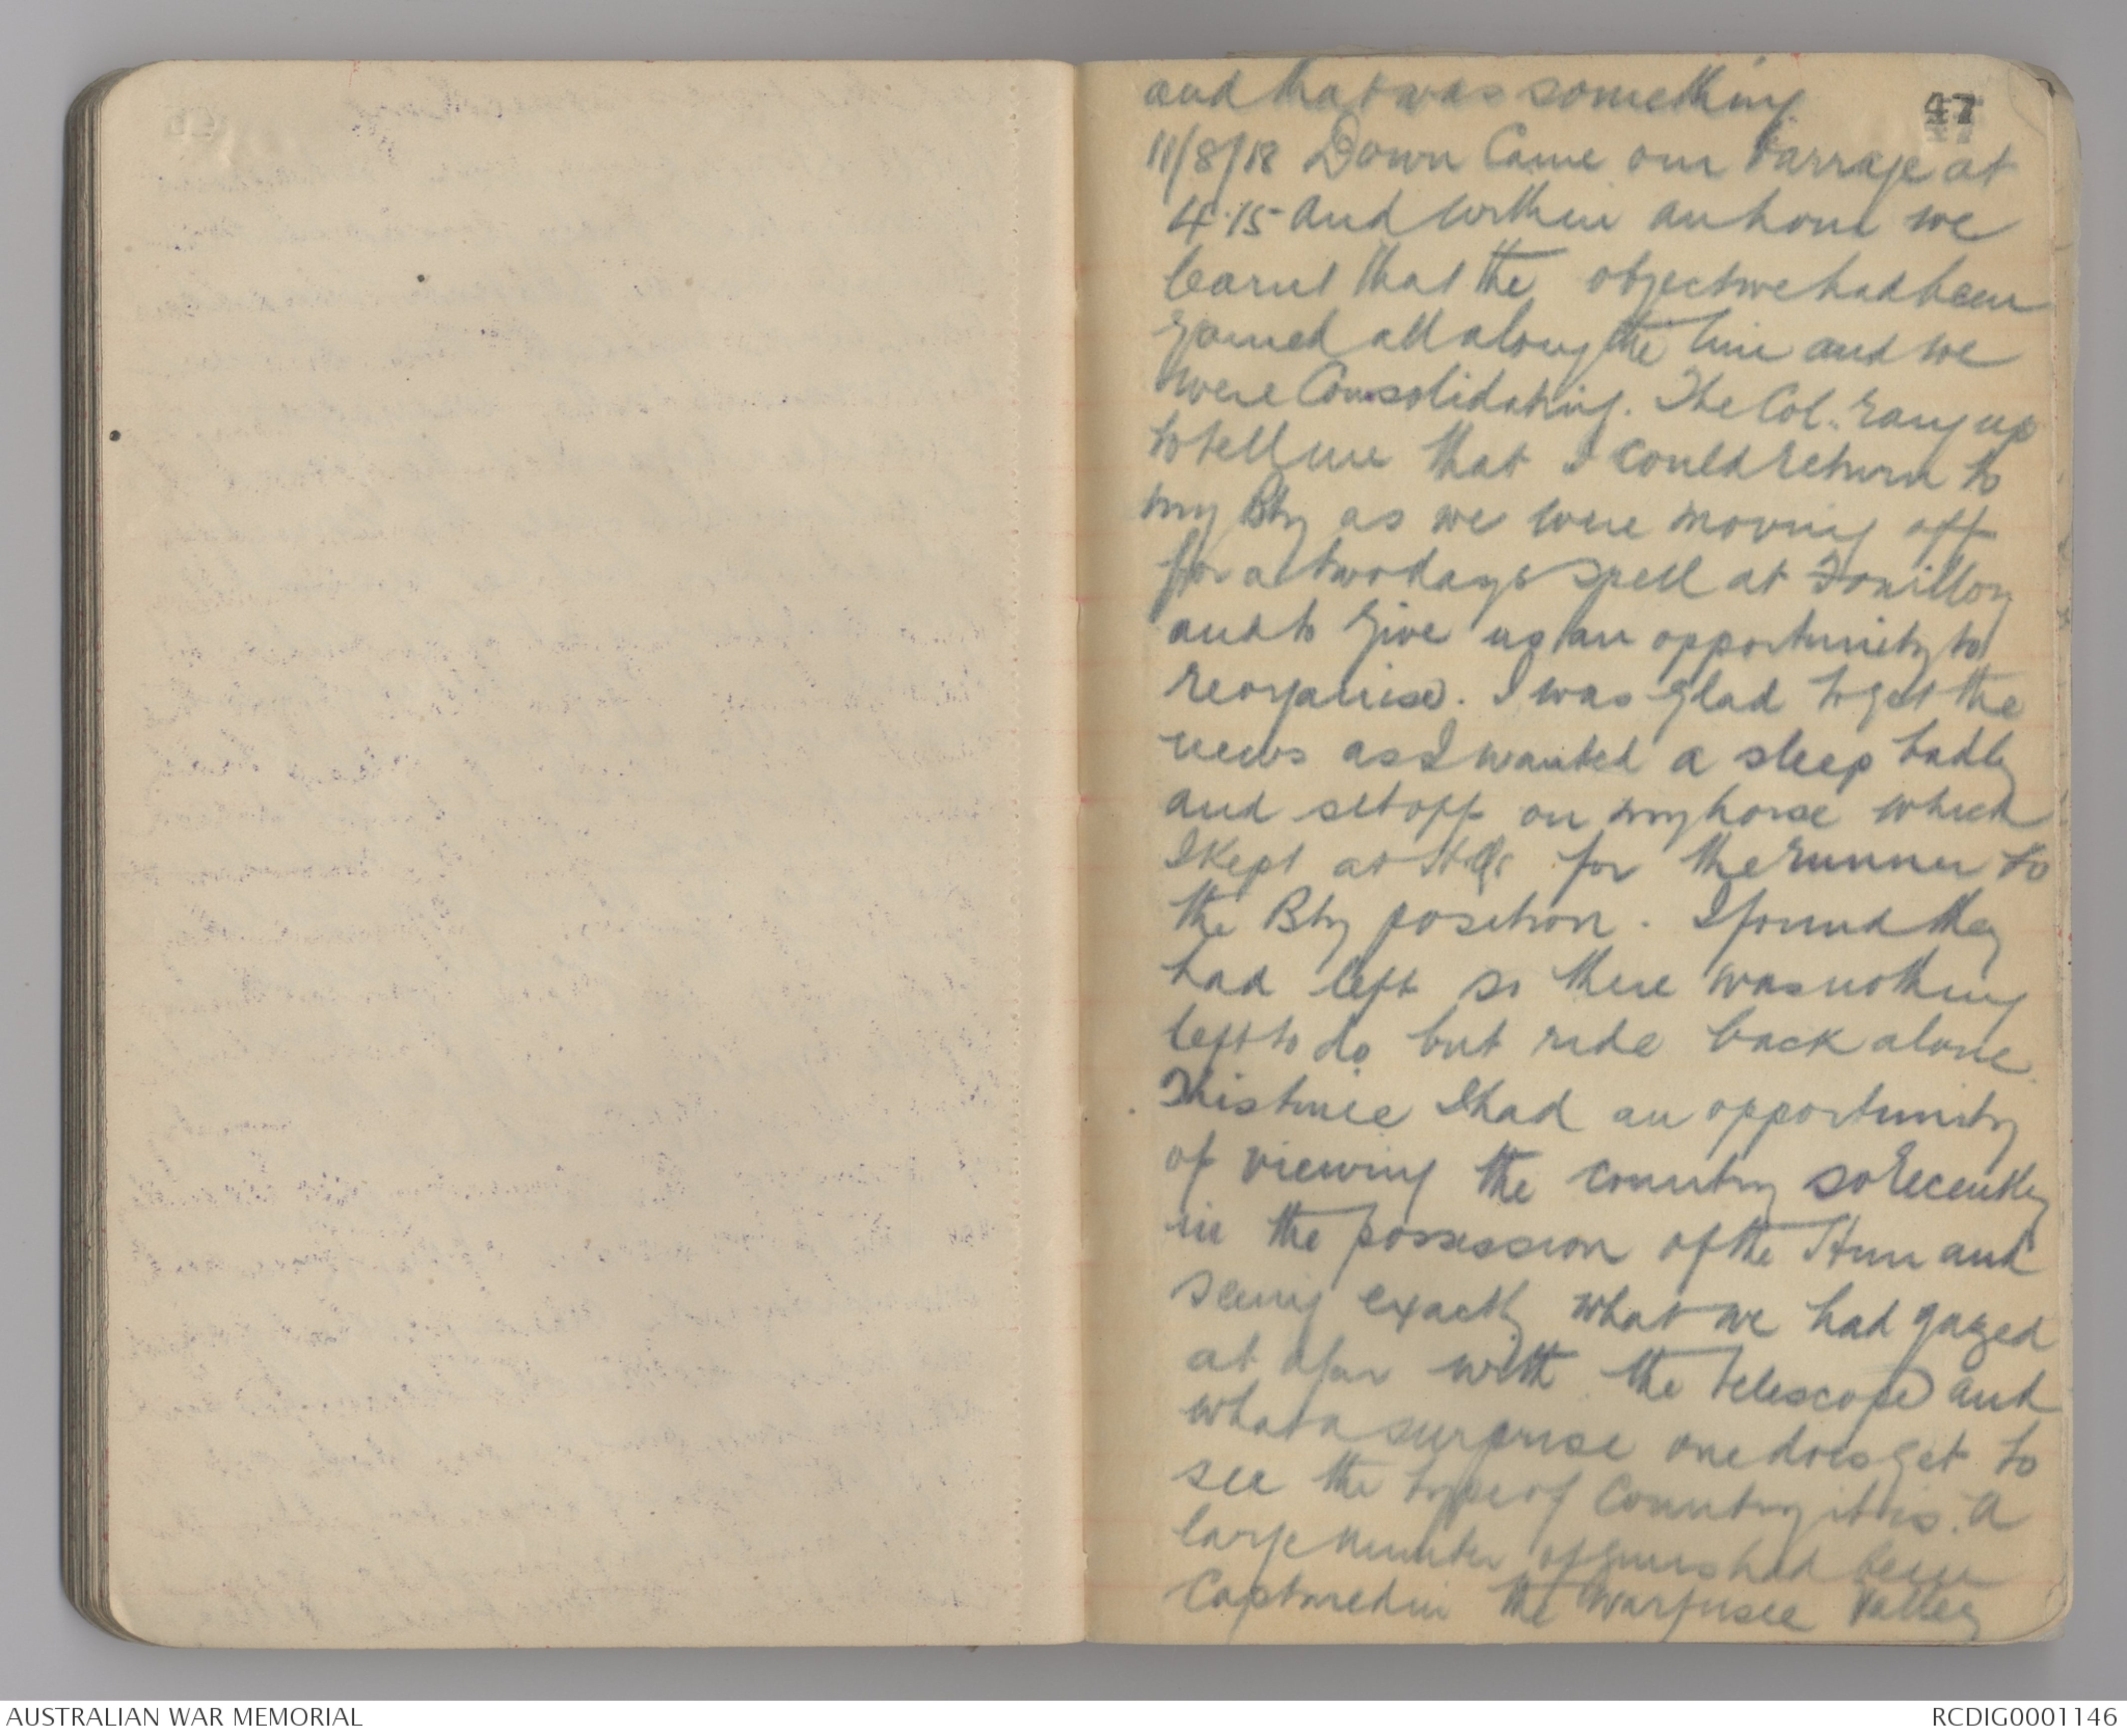 47
and that was something
11/8/18 Down Came our barrage at
4.15 and within an hour we
learnt that the objective had been
gained all along the line and we
were Consolidating. The Col. rang up
to tell me that I could return to
my Bty as we were moving off
for a two days spell at Fouilloy
and to give us an opportunity to
reorganise. I was glad to get the
news as I wanted a sleep badly
and set off on my horse which
I kept at HQrs for the runner to
the Bty position. I found they
had left so there was nothing
left to do but ride back alone.
This time I had an opportunity
of viewing the country so recently
in the possession of the Hun and
seeing exactly what we had gazed
at afar with the telescope and
what a surprise one does get to
see the type of Country it is. A
large number of guns had been
Captured in the Warfusee Valley
AUSTRALIAN WAR MEMORIAL
RCDIG0001146